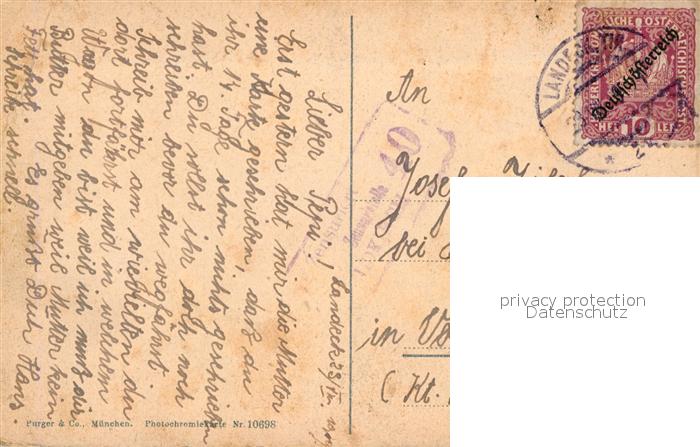 Landeck 23/VI. 1919
Lieber Pepi!
Erst gestern hat mir die Mutter
eine Karte geschrieben, daß du
ihr 14 Tage schon nichts geschrieben
hast. Du sollst ihr doch noch
schreiben bevor du wegfährst.
Schreib mir am wievielten du
dort fortfährst und in welchem
du bist weil ich muß dir
Butter mitgeben weil Mutter kein
hat. Es grüßt Dich Hans
Schreib schnell.
Purger & Co., München. Photochromiekarte Nr. 10698
Zensurstelle
40
LANDECK
Deutschösterreich
HELLER 10 HELLER
An
Josef
bei
in
(Kt.
privacy protection
Datenschutz